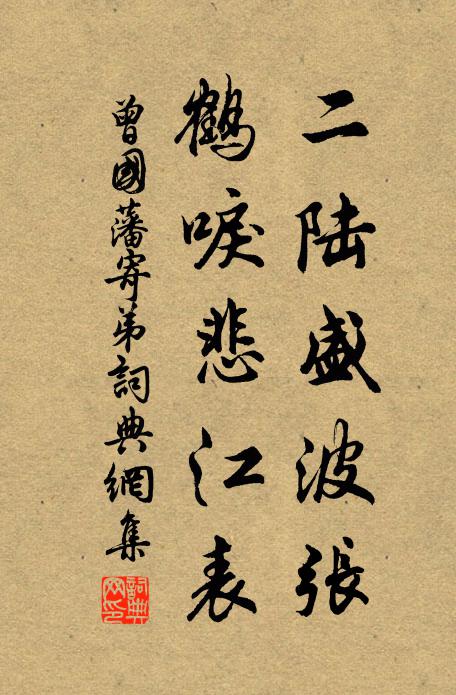 二陆盛波張
鶴唳悲江表
曾國藩寄弟詞典網集
詞典网印